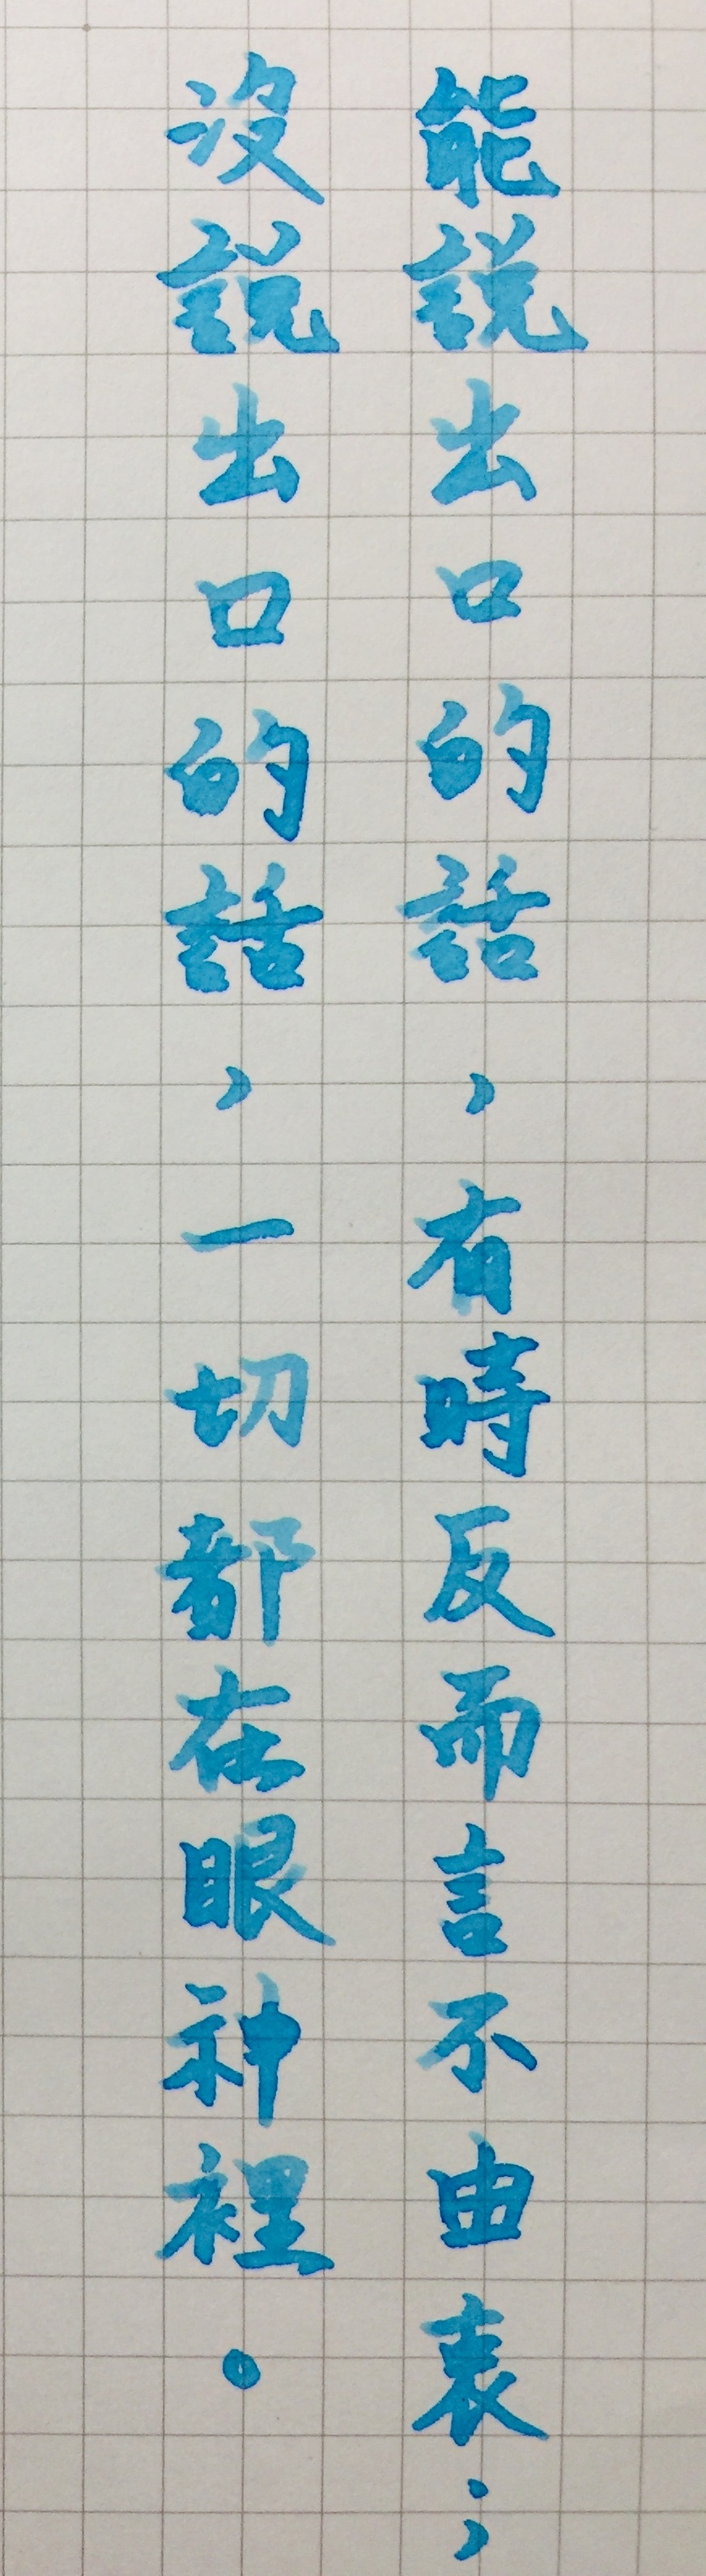 能說出口的話，有時反而言不由衷；
沒說出口的話，一切都在眼神裡。